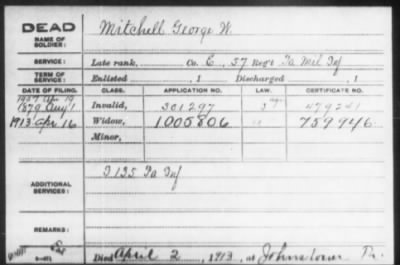 DEAD
NAME OF SOLDIER:
Mitchell George W.
SERVICE:
Late rank, Co. E, 57 Reg't Pa Mil Inf
TERM OF SERVICE:
Enlisted , 1 Discharged , 1
DATE OF FILING. CLASS. APPLICATION NO. LAW. CERTIFICATE NO.
1907 Apr 19
1879 Aug 1 Invalid, 301297 479241
1913 Apr 16 Widow, 1005806 759946
Minor,
ADDITIONAL SERVICES:
I 135 Pa Inf
REMARKS:
Died April 2, 1913, at Johnstown Pa.